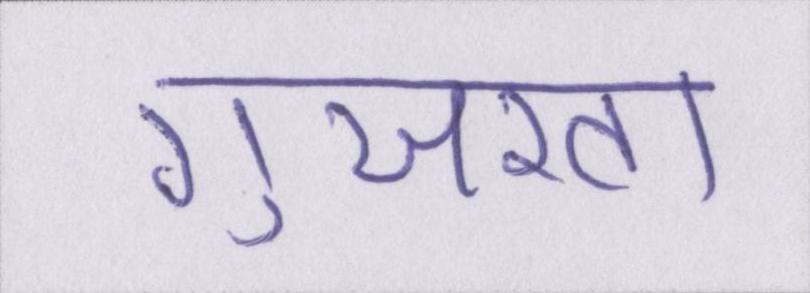 गुजरता